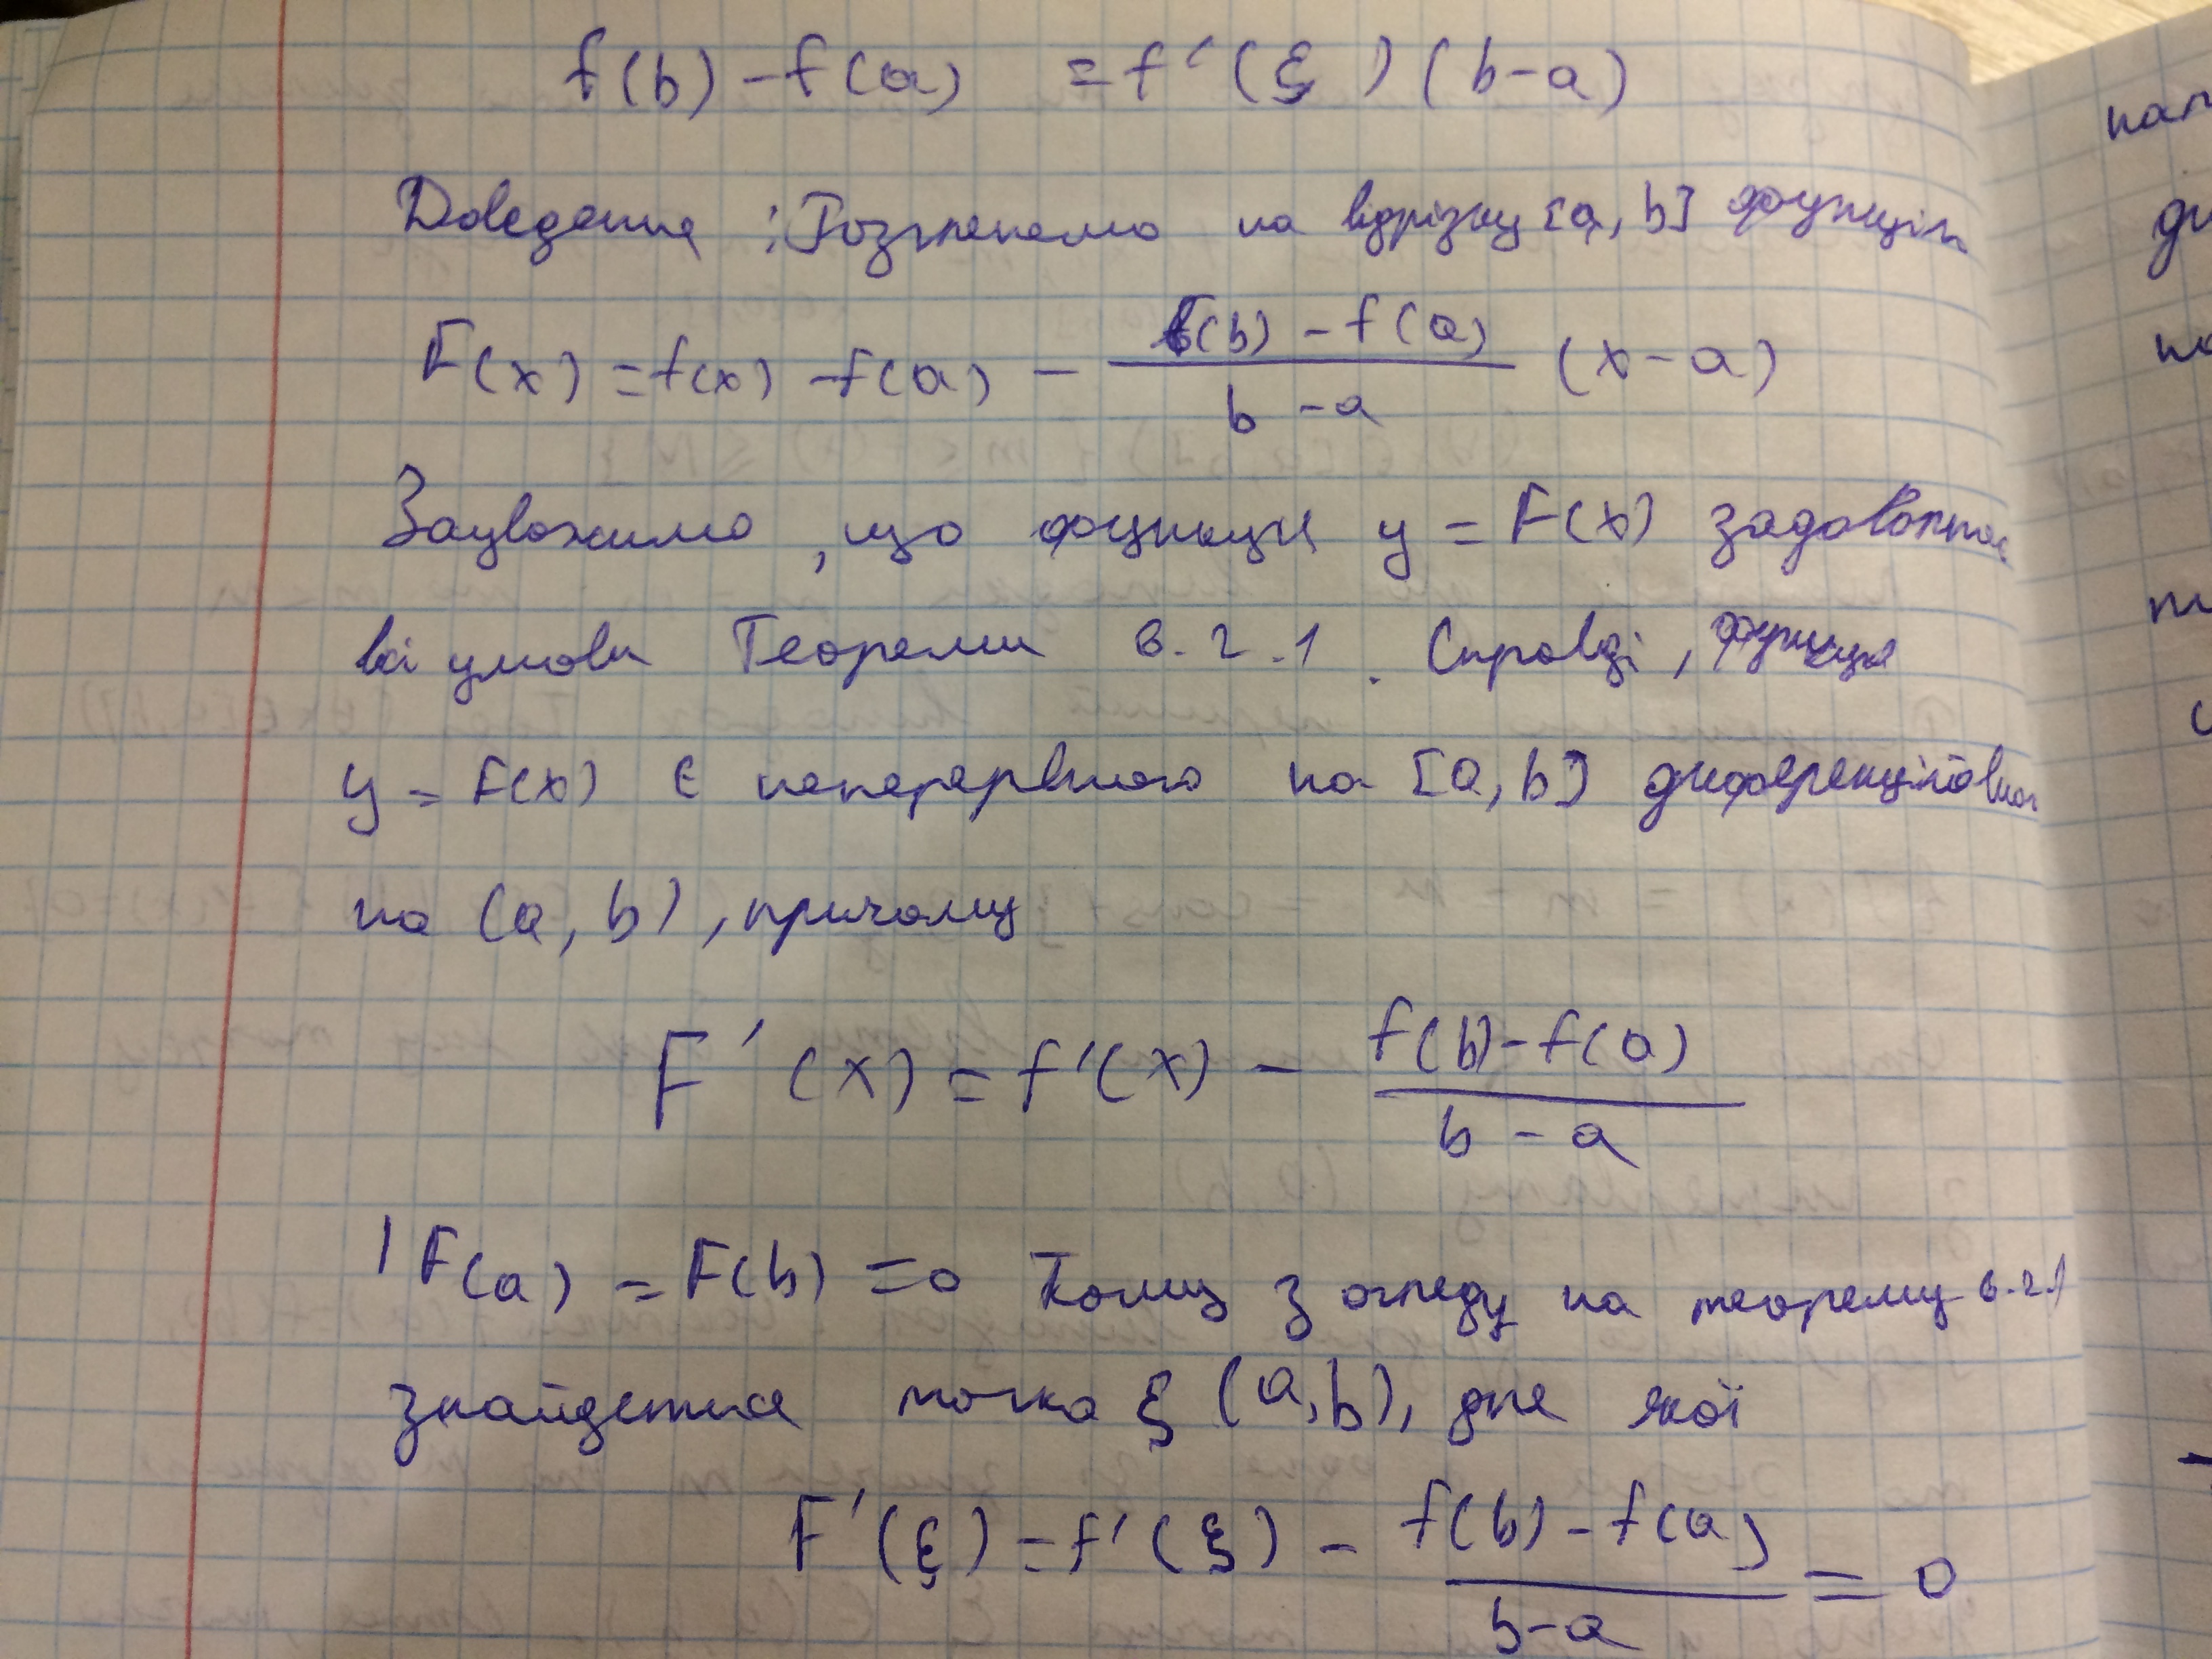 f(b) - f(a) = f'(ξ)(b-a)
Доведення: Розглянемо на відрізку [a, b] функцію
F(x) = f(x) - f(a) - \frac{f(b) - f(a)}{b - a} (x - a)
Зауважимо, що функція y = F(x) задовольняє
всі умови Теореми 6.2.1. Справді, функція
y = F(x) є неперервною на [a, b] диференційовна
на (a, b), причому
F'(x) = f'(x) - \frac{f(b) - f(a)}{b - a}
і F(a) = F(b) = 0 Тому з огляду на теорему 6.2.1
знайдеться точка ξ (a, b), для якої
F'(ξ) = f'(ξ) - \frac{f(b) - f(a)}{b - a} = 0